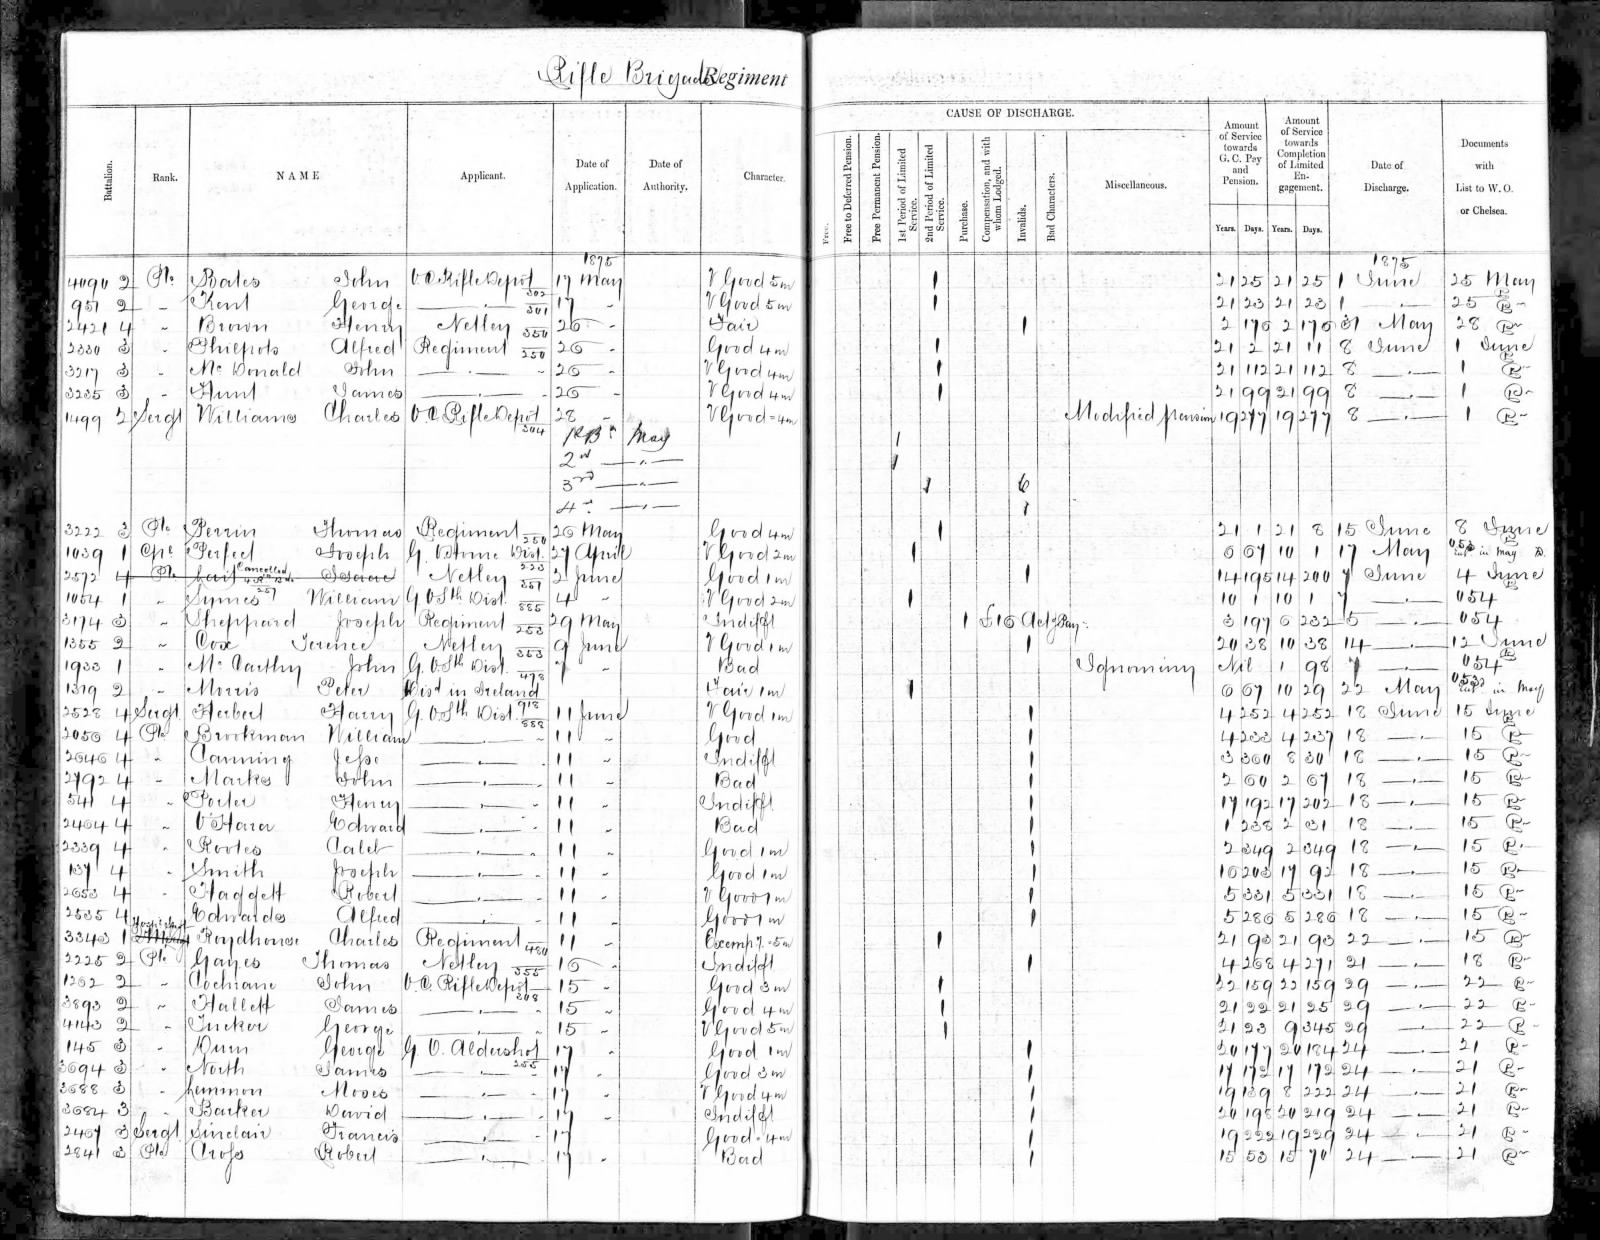 Rifle Brigade Regiment
CAUSE OF DISCHARGE.
Battalion. Rank. NAME Applicant. Date of Application. Date of Authority. Character. Free. Free to Deferred Pension. Free Permanent Pension. 1st Period of Limited Service. 2nd Period of Limited Service. Purchase. Compensation, and with whom Lodged. Invalids. Bad Characters. Miscellaneous. Amount of Service towards G. C. Pay and Pension. Amount of Service towards Completion of Limited Engagement. Date of Discharge. Documents with List to W. O. or Chelsea.
Years. Days. Years. Days.
1875 1875
4090 2 Pte John O.C. Rifle Depot 302 17 May V Good 5m 1 21 25 21 25 1 June 25 May
951 2 " Kent George 301 17 " V Good 5m 1 21 23 21 23 1 " 25
2421 4 " Brown Henry Netley 350 26 " Fair 1 2 176 2 176 31 May 28
2330 3 " Philpots Alfred Regiment 250 26 " Good 4m 1 21 2 21 11 8 June 1 June
3217 3 " McDonald John " 26 " V Good 4m 1 21 112 21 112 8 " 1
3235 3 " Hunt James " 26 " V Good 4m 1 21 99 21 99 8 " 1
1499 2 Sergt Williams Charles O.C. Rifle Depot 304 28 " V Good 4m Modified pension 19 277 19 277 8 " 1
1st Bn May 1
2nd " 1
3rd " 1 6
4th " 1
3222 3 Pte Perrin Thomas Regiment 250 26 May Good 4m 1 21 1 21 8 15 June 8 June
1039 1 Cpl Perfect Joseph G.O. Home Dist. 223 27 April V Good 2m 1 6 67 10 1 17 May in May
2572 4 Pte Cancelled Isaac Netley 357 2 June Good 1m 1 14 195 14 200 7 June 4 June
1054 1 " Symes William G O Sth Dist. 885 4 " V Good 2m 1 10 1 10 1 7 " 054
3174 3 " Sheppard Joseph Regiment 253 29 May Indifft 1 £16 3 197 6 232 5 " 054
1355 2 " Cox Terence Netley 353 9 June V Good 1m 1 20 38 10 38 14 " 12 June
1933 1 " McCarthy John G. O Sth Dist. 478 7 " Bad Ignominy Nil 1 98 7 " 054
1319 2 " Morris Peter Dist in Ireland 918 Fair 1m 1 6 67 10 29 22 May in May
2528 4 Sergt Herbert Harry G. O Sth Dist 888 11 June V Good 1m 1 4 252 4 252 18 June 15 June
2056 4 Pte Brookman William " 11 " Good 1 4 233 4 237 18 " 15
2646 4 " Canning Jesse " 11 " Indifft 1 3 360 8 30 18 " 15
2792 4 " Marks John " 11 " Bad 1 2 60 2 67 18 " 15
541 4 " Porter Henry " 11 " Indifft 1 17 192 17 202 18 " 15
2464 4 " O'Hara Edward " 11 " Bad 1 1 238 2 31 18 " 15
2339 4 " Rootes Caleb " 11 " Good 1m 1 2 349 2 349 18 " 15
137 4 " Smith Joseph " 11 " Good 1m 1 16 203 17 92 18 " 15
2653 4 " Haggett Robert " 11 " V Good 1m 1 5 331 5 331 18 " 15
2535 4 Edwards Alfred " 11 " Good 1m 1 5 286 5 286 18 " 15
3343 1 Roydhouse Charles Regiment 480 11 " Exemp'y 5m 1 21 93 21 93 22 " 15
2225 2 Pte Gayes Thomas Netley 355 16 " Indifft 1 4 268 4 271 21 " 18
1262 2 " Cochrane John O.C. Rifle Depot 308 15 " Good 3m 1 22 159 22 159 29 " 22
3893 2 " Hallett James " 15 " Good 4m 1 21 22 21 25 29 " 22
4143 2 " Tucker George " 15 " V Good 5m 1 21 23 9 345 29 " 22
145 3 " Dunn George G O. Aldershot 255 17 " Good 1m 1 20 177 20 184 24 " 21
3694 3 " North James " 17 " Good 3m 1 17 172 17 172 24 " 21
3688 3 " Lemmon Moses " 17 " V Good 4m 1 19 139 8 222 24 " 21
3684 3 " Barker David " 17 " Indifft 1 20 198 20 219 24 " 21
2467 3 Sergt Sinclair Francis " 17 " Good 4m 1 19 222 19 229 24 " 21
2841 3 Pte Cross Robert " 17 " Bad 1 15 53 15 70 24 " 21